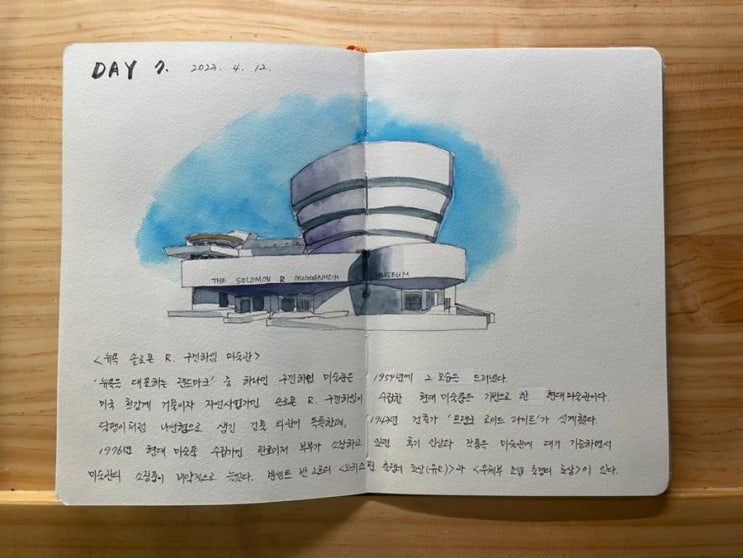 DAY 7. 2023. 4. 12.
THE SOLOMON R GUGGENHEIM MUSEUM
<뉴욕 솔로몬 R. 구겐하임 미술관>
'뉴욕을 대표하는 랜드마크' 중 하나인 구겐하임 미술관은 1959년에 그 모습을 드러냈다.
미국 철강계 거물이자 자선사업가인 솔로몬 R. 구겐하임이 수집한 현대 미술품을 기반으로 한 현대미술관이다.
달팽이처럼 나선형으로 생긴 건물 외관이 독특한데, 1943년 건축가 '프랭크 로이드 라이트'가 설계했다.
1976년 현대 미술품 수집가인 탄호이저 부부가 소장하고 있던 후기 인상파 작품을 미술관에 대거 기증하면서
미술관의 소장품이 비약적으로 늘었다. 빈센트 반 고흐의 < >과 <우체부 조셉 룰랭의 초상>이 있다.